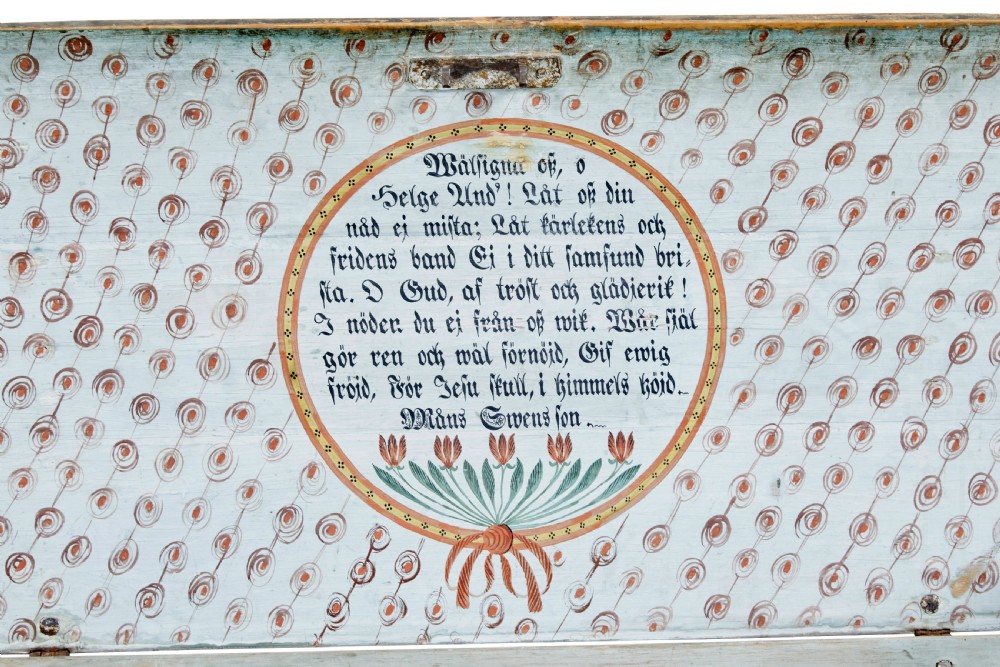 Wälsigna oß, o
Helge And'! Låt oß din
nåd ej mista; Låt kärlekens och
fridens band Ei i ditt samfund bri-
sta. O Gud, af tröst och glädjerik!
I nöden du ej från oß wik. Wår själ
gör ren och wäl förnöjd, Gif ewig
fröjd, För Jesu skull, i himmels höjd.
Måns Swensson.